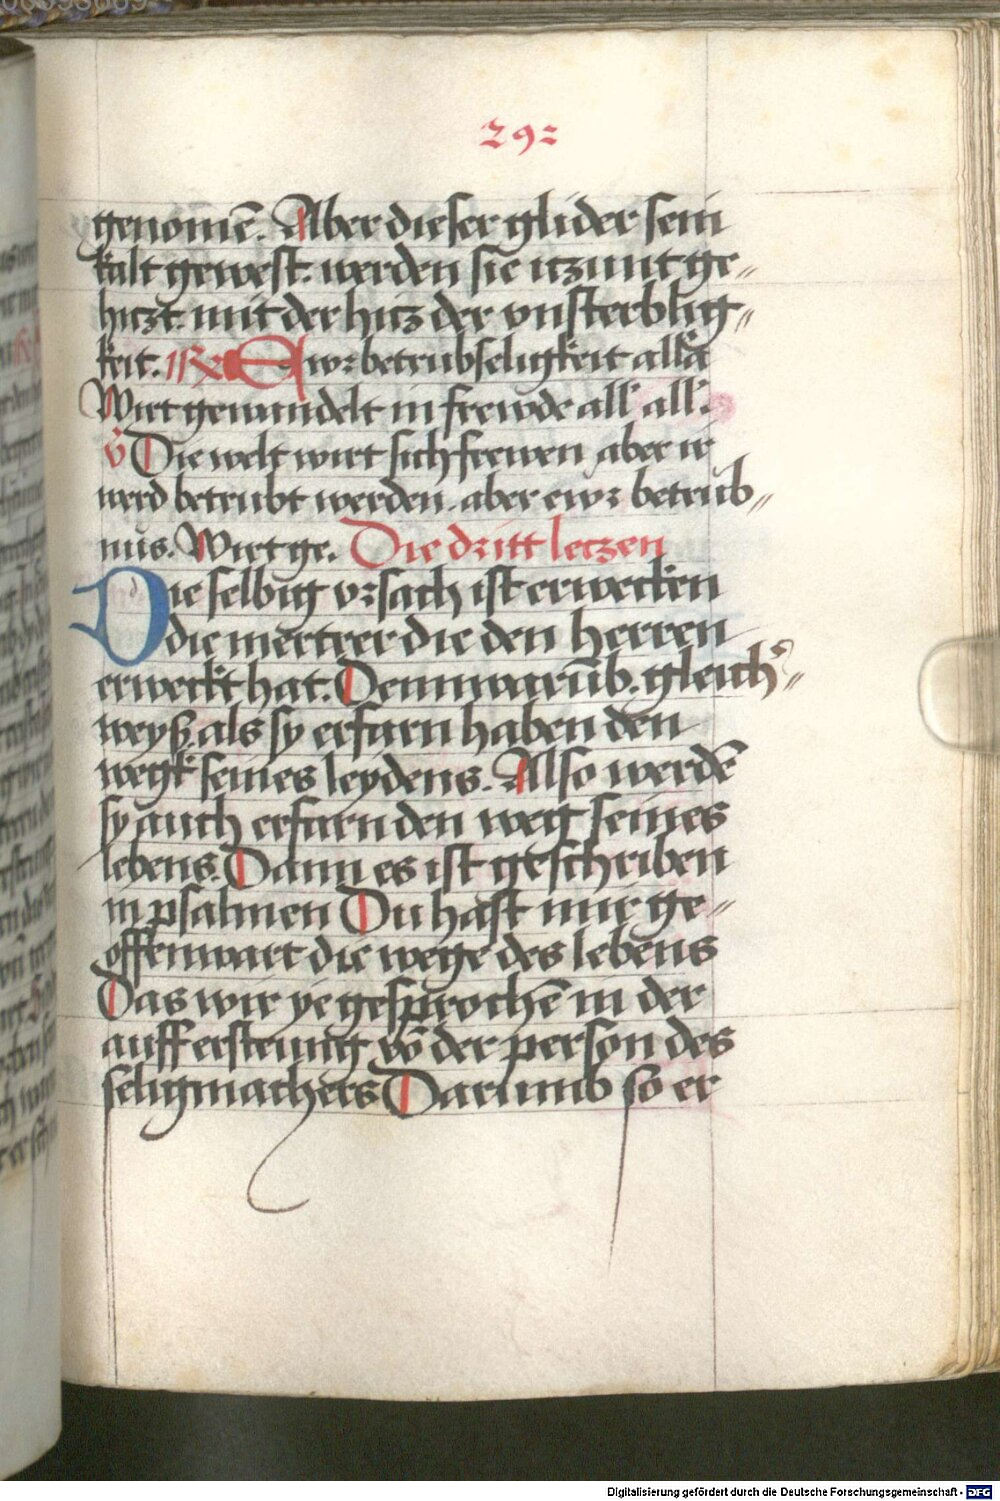 292
genomē. Aber dieser glider sein
kalt gewest. werden sie iczunt ge⸗
hiczt. mit der hicz der vnsterblig⸗
keit. Ewr betrubseligkeit alła
Wirt gewandelt in frewde all' all'.
v̄ Die welt wirt sich frewen aber ir
werd betrubt werden. aber ewr betrub⸗
nus. Wirt ge. Die dritt leczen
Die selbig vrsach ist erwecken
die mertrer die den herren
erweckt hat. Denn warūb. gleich⸗
weyß. als sy erfarn haben den
wegk seines leydens. Also werdē
sy auch erfarn den weg seines
lebens. Dann es ist geschriben
in psalmen Du hast mir ge⸗
offenwart die wege des lebens
Das wir ye gesprochē in der
auffersteung vō der person des
seligmachers Darumb so er
Digitalisierung gefördert durch die Deutsche Forschungsgemeinschaft - DFG